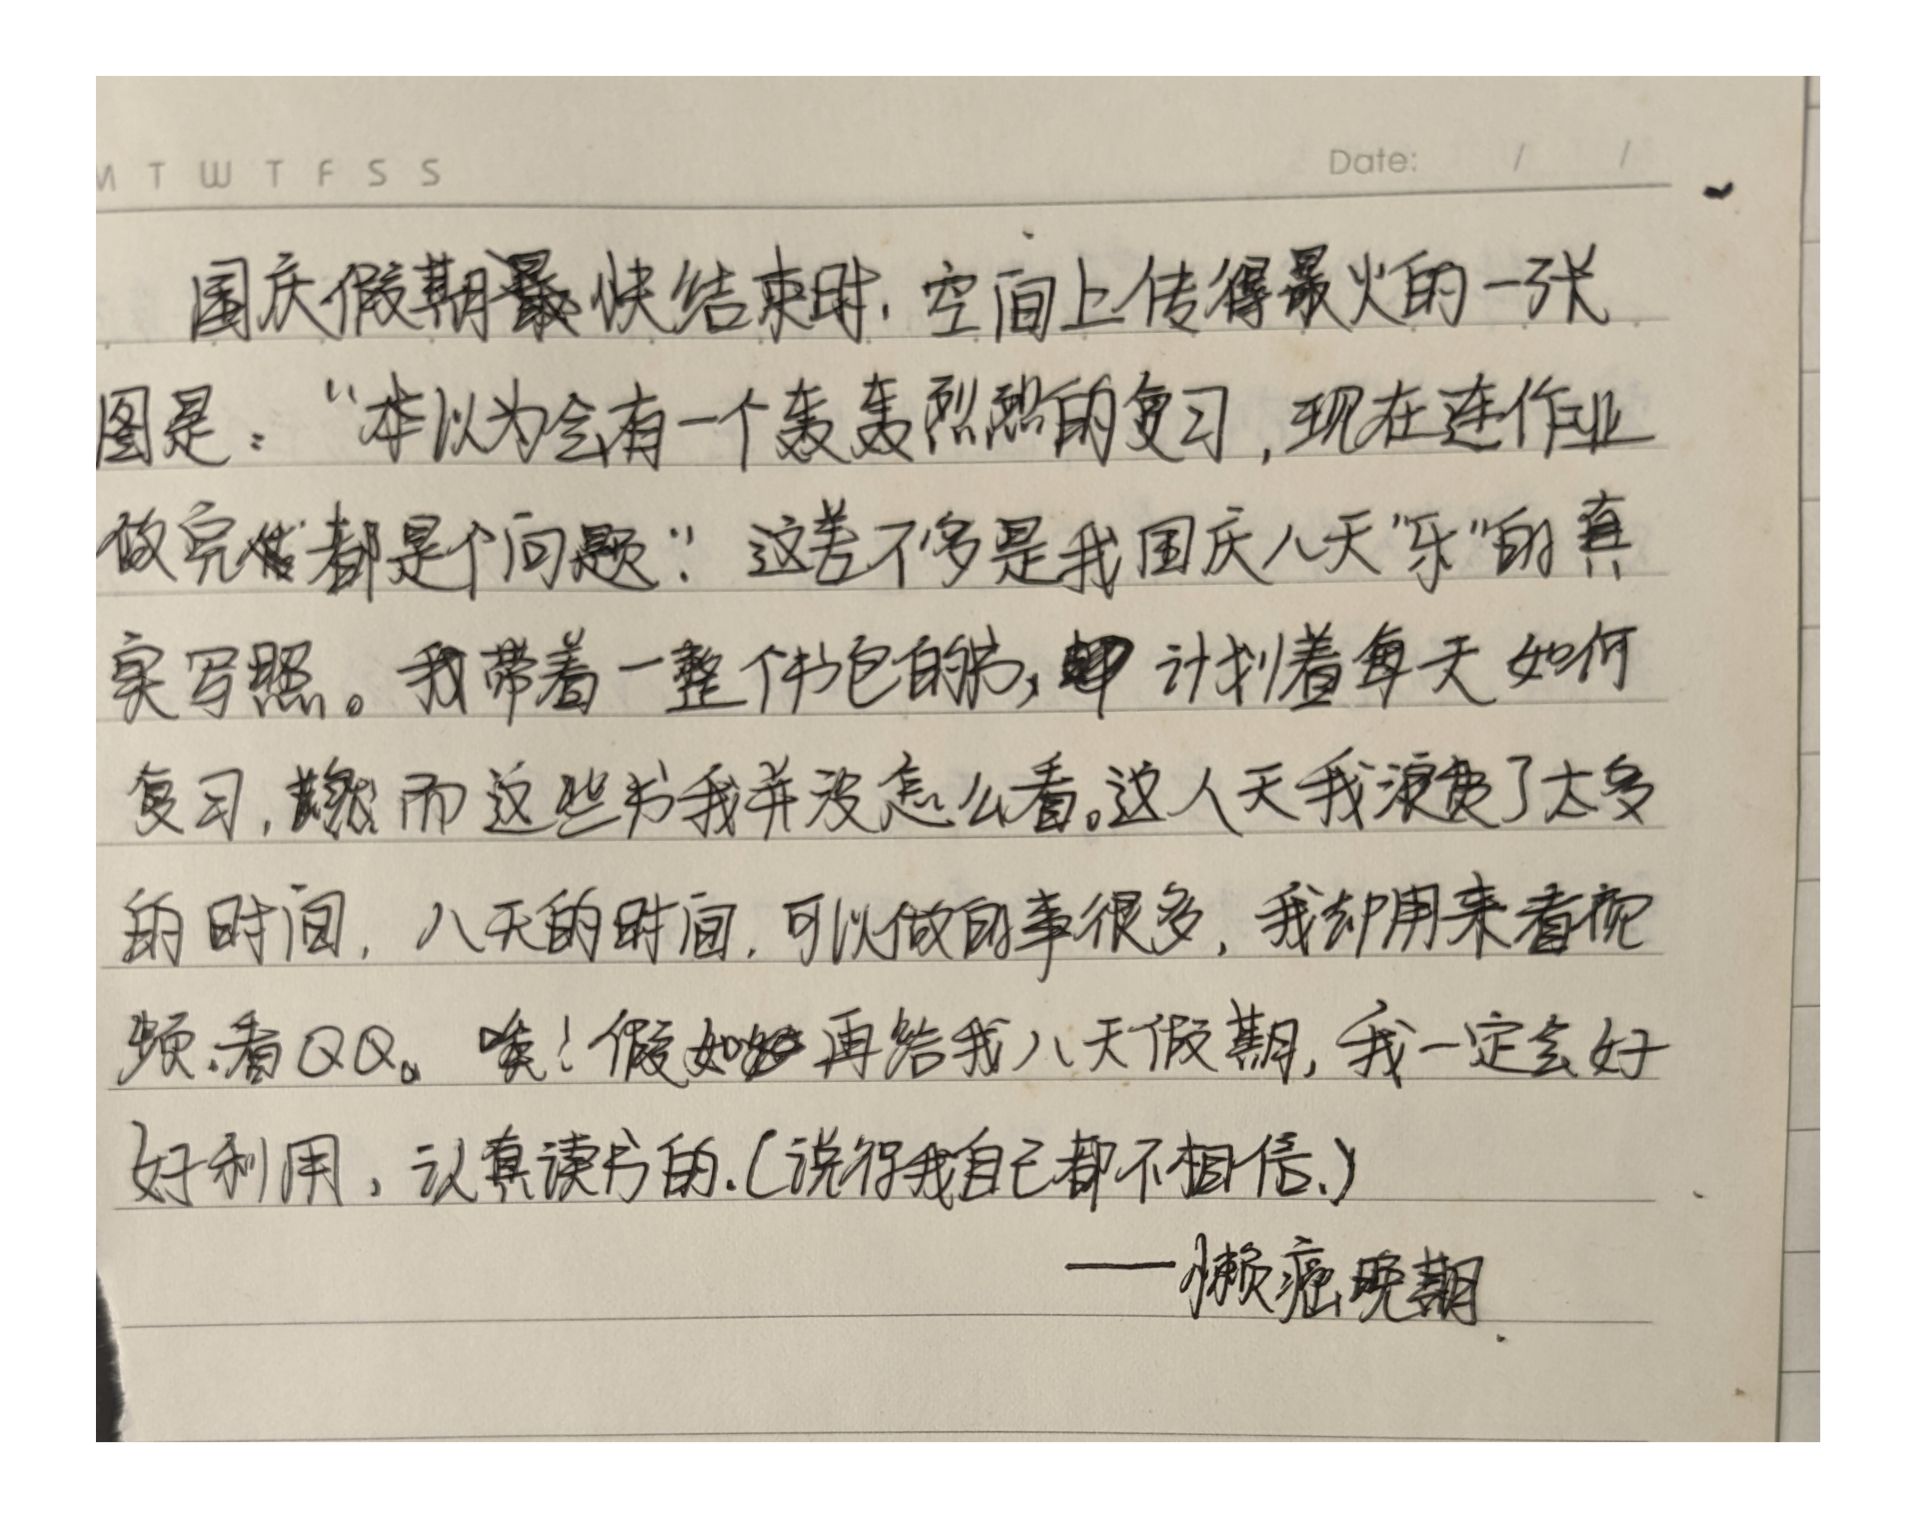 M T W T F S S
Date: / /
国庆假期快结束时，空间上传得最火的一张
图是：“本以为会有一个轰轰烈烈的复习，现在连作业
做完都是个问题”。这差不多是我国庆八天“乐”的真
实写照。我带着一整个书包的书，计划着每天如何
复习，而这些书我并没怎么看。这八天我浪费了太多
的时间，八天的时间，可以做的事很多，我却用来看视
频.看QQ。唉！假如再给我八天假期，我一定会好
好利用，认真读书的.(说得我自己都不相信.)
——懒癌晚期.